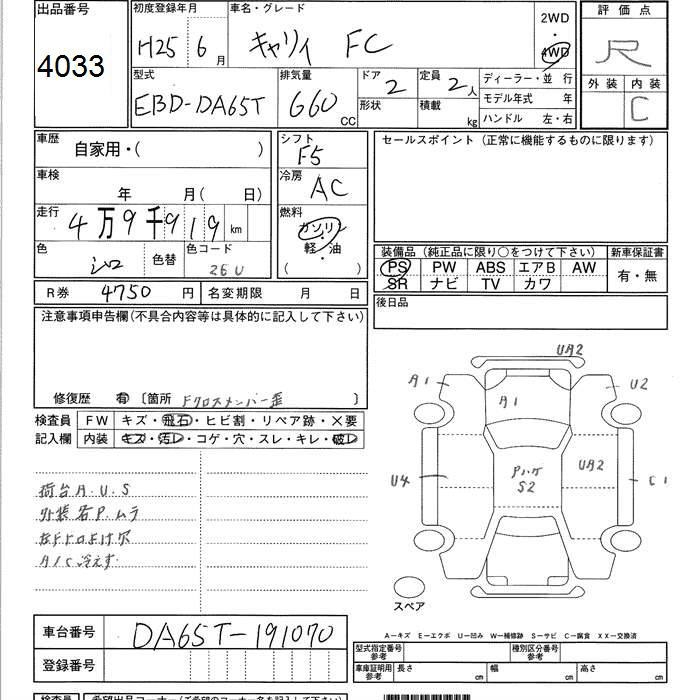 出品番号
4033
初度登録年月
H25 6月
車名・グレード
キャリィ FC
2WD
4WD
評価点
R
外装 内装
C
型式
EBD-DA65T
排気量
660 CC
ドア 2
形状
定員 2人
積載 kg
ディーラー・並行
モデル年式 年
ハンドル 左・右
車歴
自家用・( )
車検
年 月( 日)
走行
4万9千919 km
色
シロ
色替
色コード
26U
シフト
F5
冷房
AC
燃料
ガソリン
軽・油
( )
セールスポイント (正常に機能するものに限ります)
装備品 (純正品に限り○をつけて下さい)
新車保証書
PS PW ABS エアB AW
有・無
SR ナビ TV カワ
後日品
R券 4750 円
名変期限 月 日
注意事項申告欄(不具合内容等は具体的に記入して下さい)
修復歴 有 〔箇所 Fクロスメンバー歪 〕
検査員
記入欄
FW キズ・飛石・ヒビ割・リペア跡・×要
内装 キズ・汚レ・コゲ・穴・スレ・キレ・破レ
荷台A.U.S
外装右P.ムラ
A/C冷えず
UA2
A1
A1
U2
U4
Pハゲ
S2
UA2
C1
スペア
A－キズ E－エクボ U－凹み W－補修跡 S－サビ C－腐食 XX－交換済
車台番号
DA65T-191070
登録番号
型式指定番号
参考
種別区分番号
参考
車庫証明用
参考
長さ cm
幅 cm
高さ cm
検査員
希望出品コーナー(ご希望のコーナー名を記入して下さい)